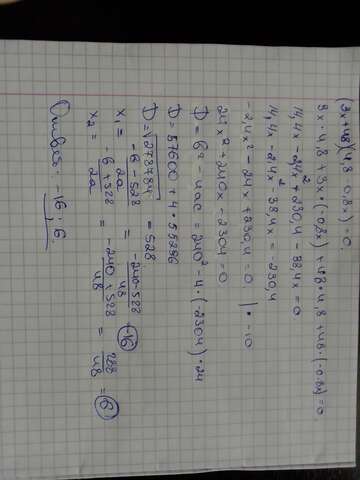 (3x+48)(4,8-0,8x)=0.
3x·4,8+3x·(-0,8x)+48·4,8+48·(-0,8x)=0
14,4x-2,4x²+230,4-38,4x=0
14,4x-2,4x²-38,4x=-230,4
-2,4x²-24x+230,4=0 |·-10
24x²+240x-2304=0
D=b²-4ac=240²-4·(-2304)·24
D=57600+4·55296
D=√278784=528
x₁=-b-528/2a=-240-528/48=-16
x₂=-b+528/2a=-240+528/48=288/48=6
Ответ: -16; 6.